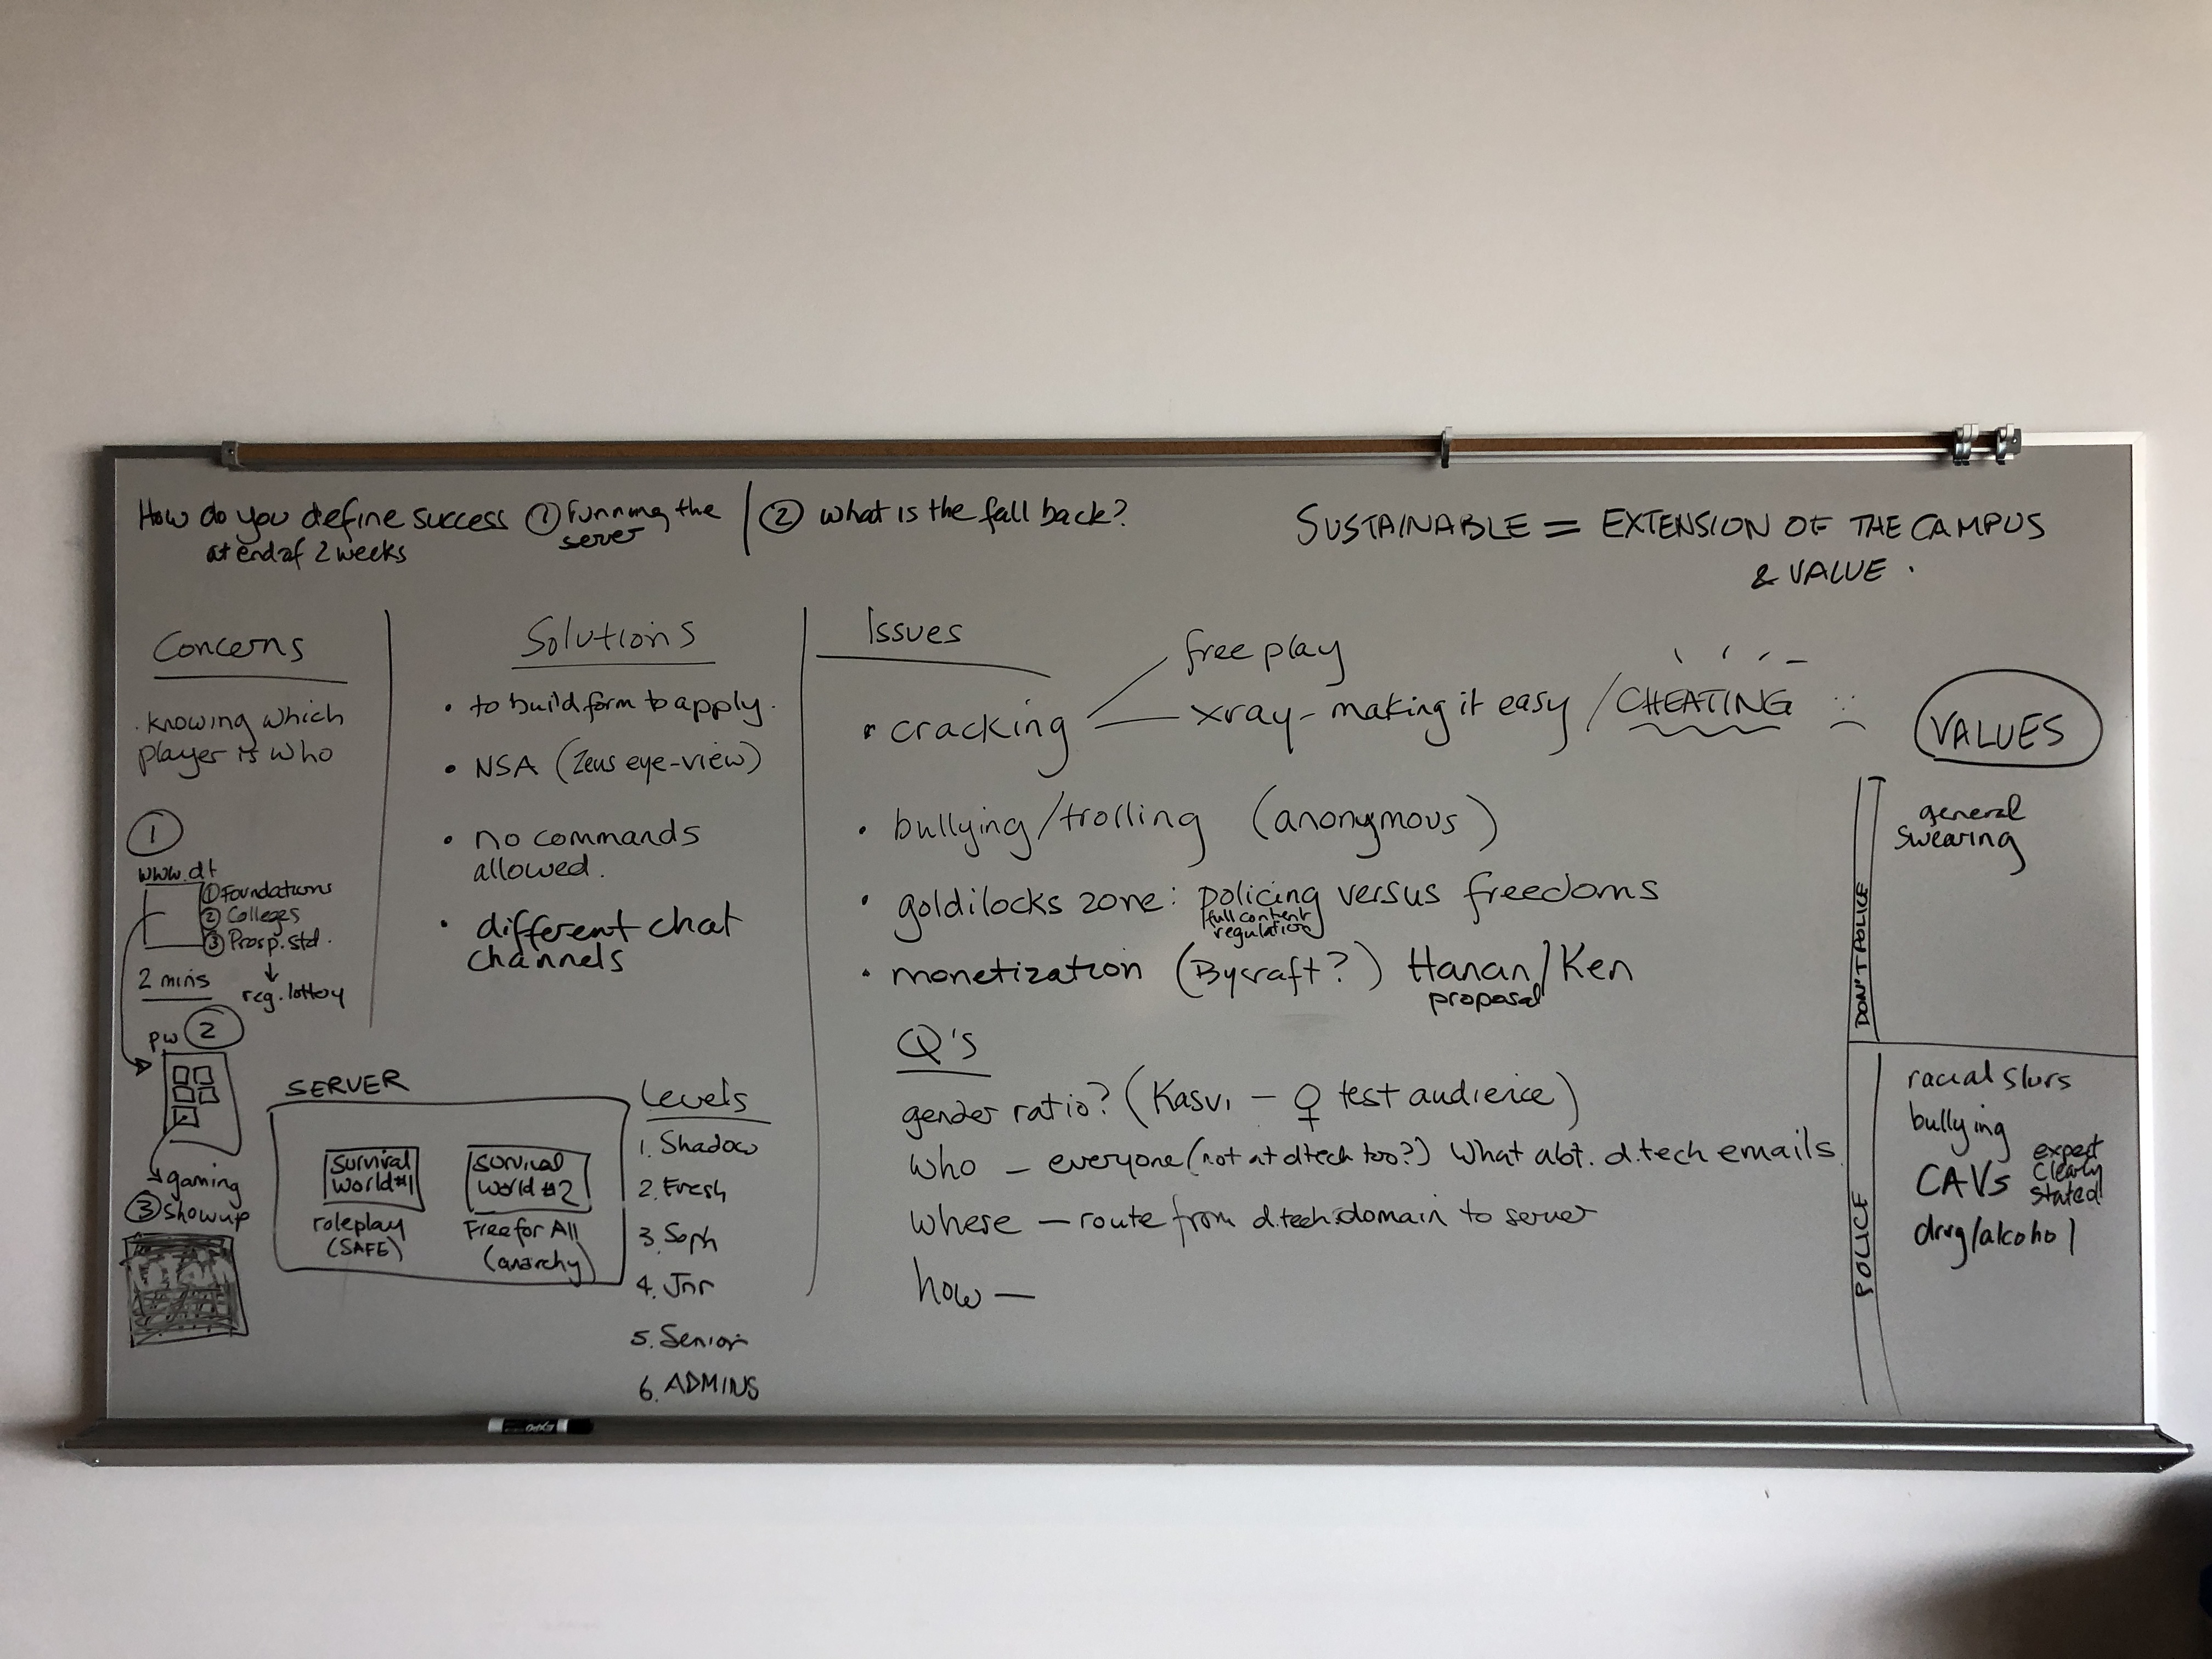 How do you define success ① running the
server
at end of 2 weeks
② what is the fall back?
SUSTAINABLE = EXTENSION OF THE CAMPUS
& VALUE.
Concerns
. knowing which
player is who
①
www.dt
① Foundations
② Colleges
③ Prosp. std.
↓
2 mins
reg. lottery
pw ②
gaming
③ show up
Solutions
• to build form to apply.
• NSA (Zeus eye-view)
• no commands
allowed.
• different chat
channels
SERVER
Survival
World #1
roleplay
(SAFE)
Survival
World #2
Free for All
(anarchy)
Levels
1. Shadow
2. Fresh
3. Soph
4. Jnr
5. Senior
6. ADMINS
Issues
• cracking
free play
xray - making it easy / CHEATING
• bullying/trolling (anonymous)
• goldilocks zone: policing versus freedoms
full content
regulation
• monetization (Bycraft?) Hanan/Ken
proposal
Q's
gender ratio? (Kasvi - ♀ test audience)
who - everyone (not at dtech too?) What abt. d.tech emails
where - route from d.tech domain to server
how -
VALUES
DON'T POLICE
general
swearing
POLICE
racial slurs
bullying
CAVs
expect
clearly
stated!
drug/alcohol
EXPO